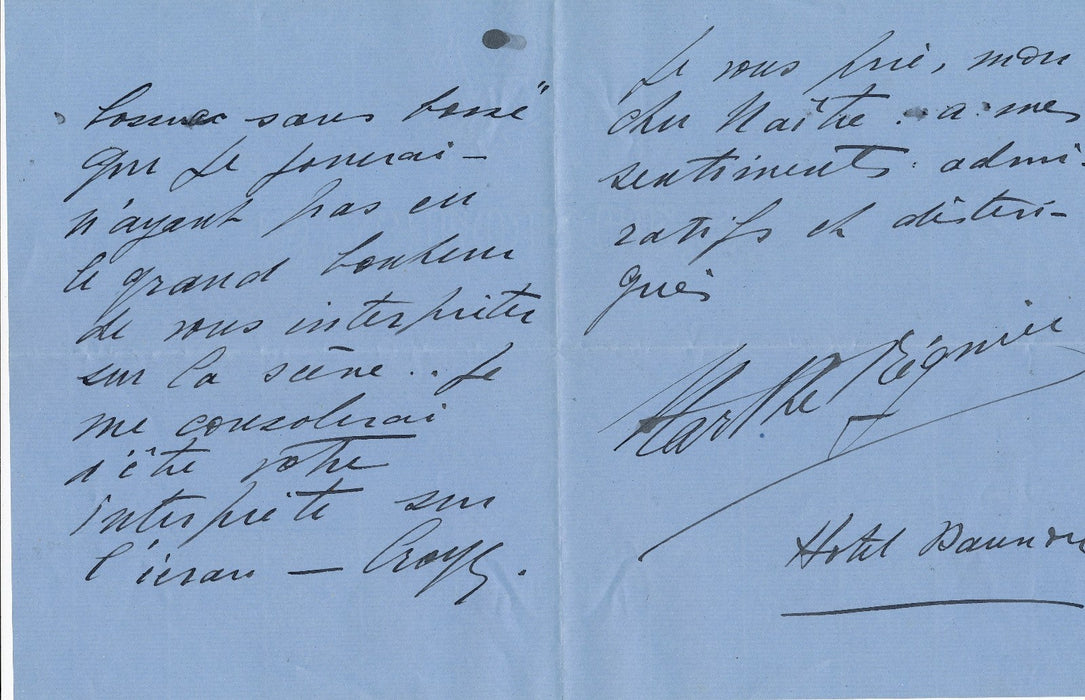 bossue sans bosse"
que je jouerai –
n'ayant pas eu
le grand bonheur
de vous interpréter
sur la scène.. Je
me consolerai
d'être votre
interprète sur
l'écran — Croyez.
Je vous prie, mon
cher Maître. à mes
sentiments admi-
ratifs et distin-
gués
Marthe Régnier
Hotel Daunou